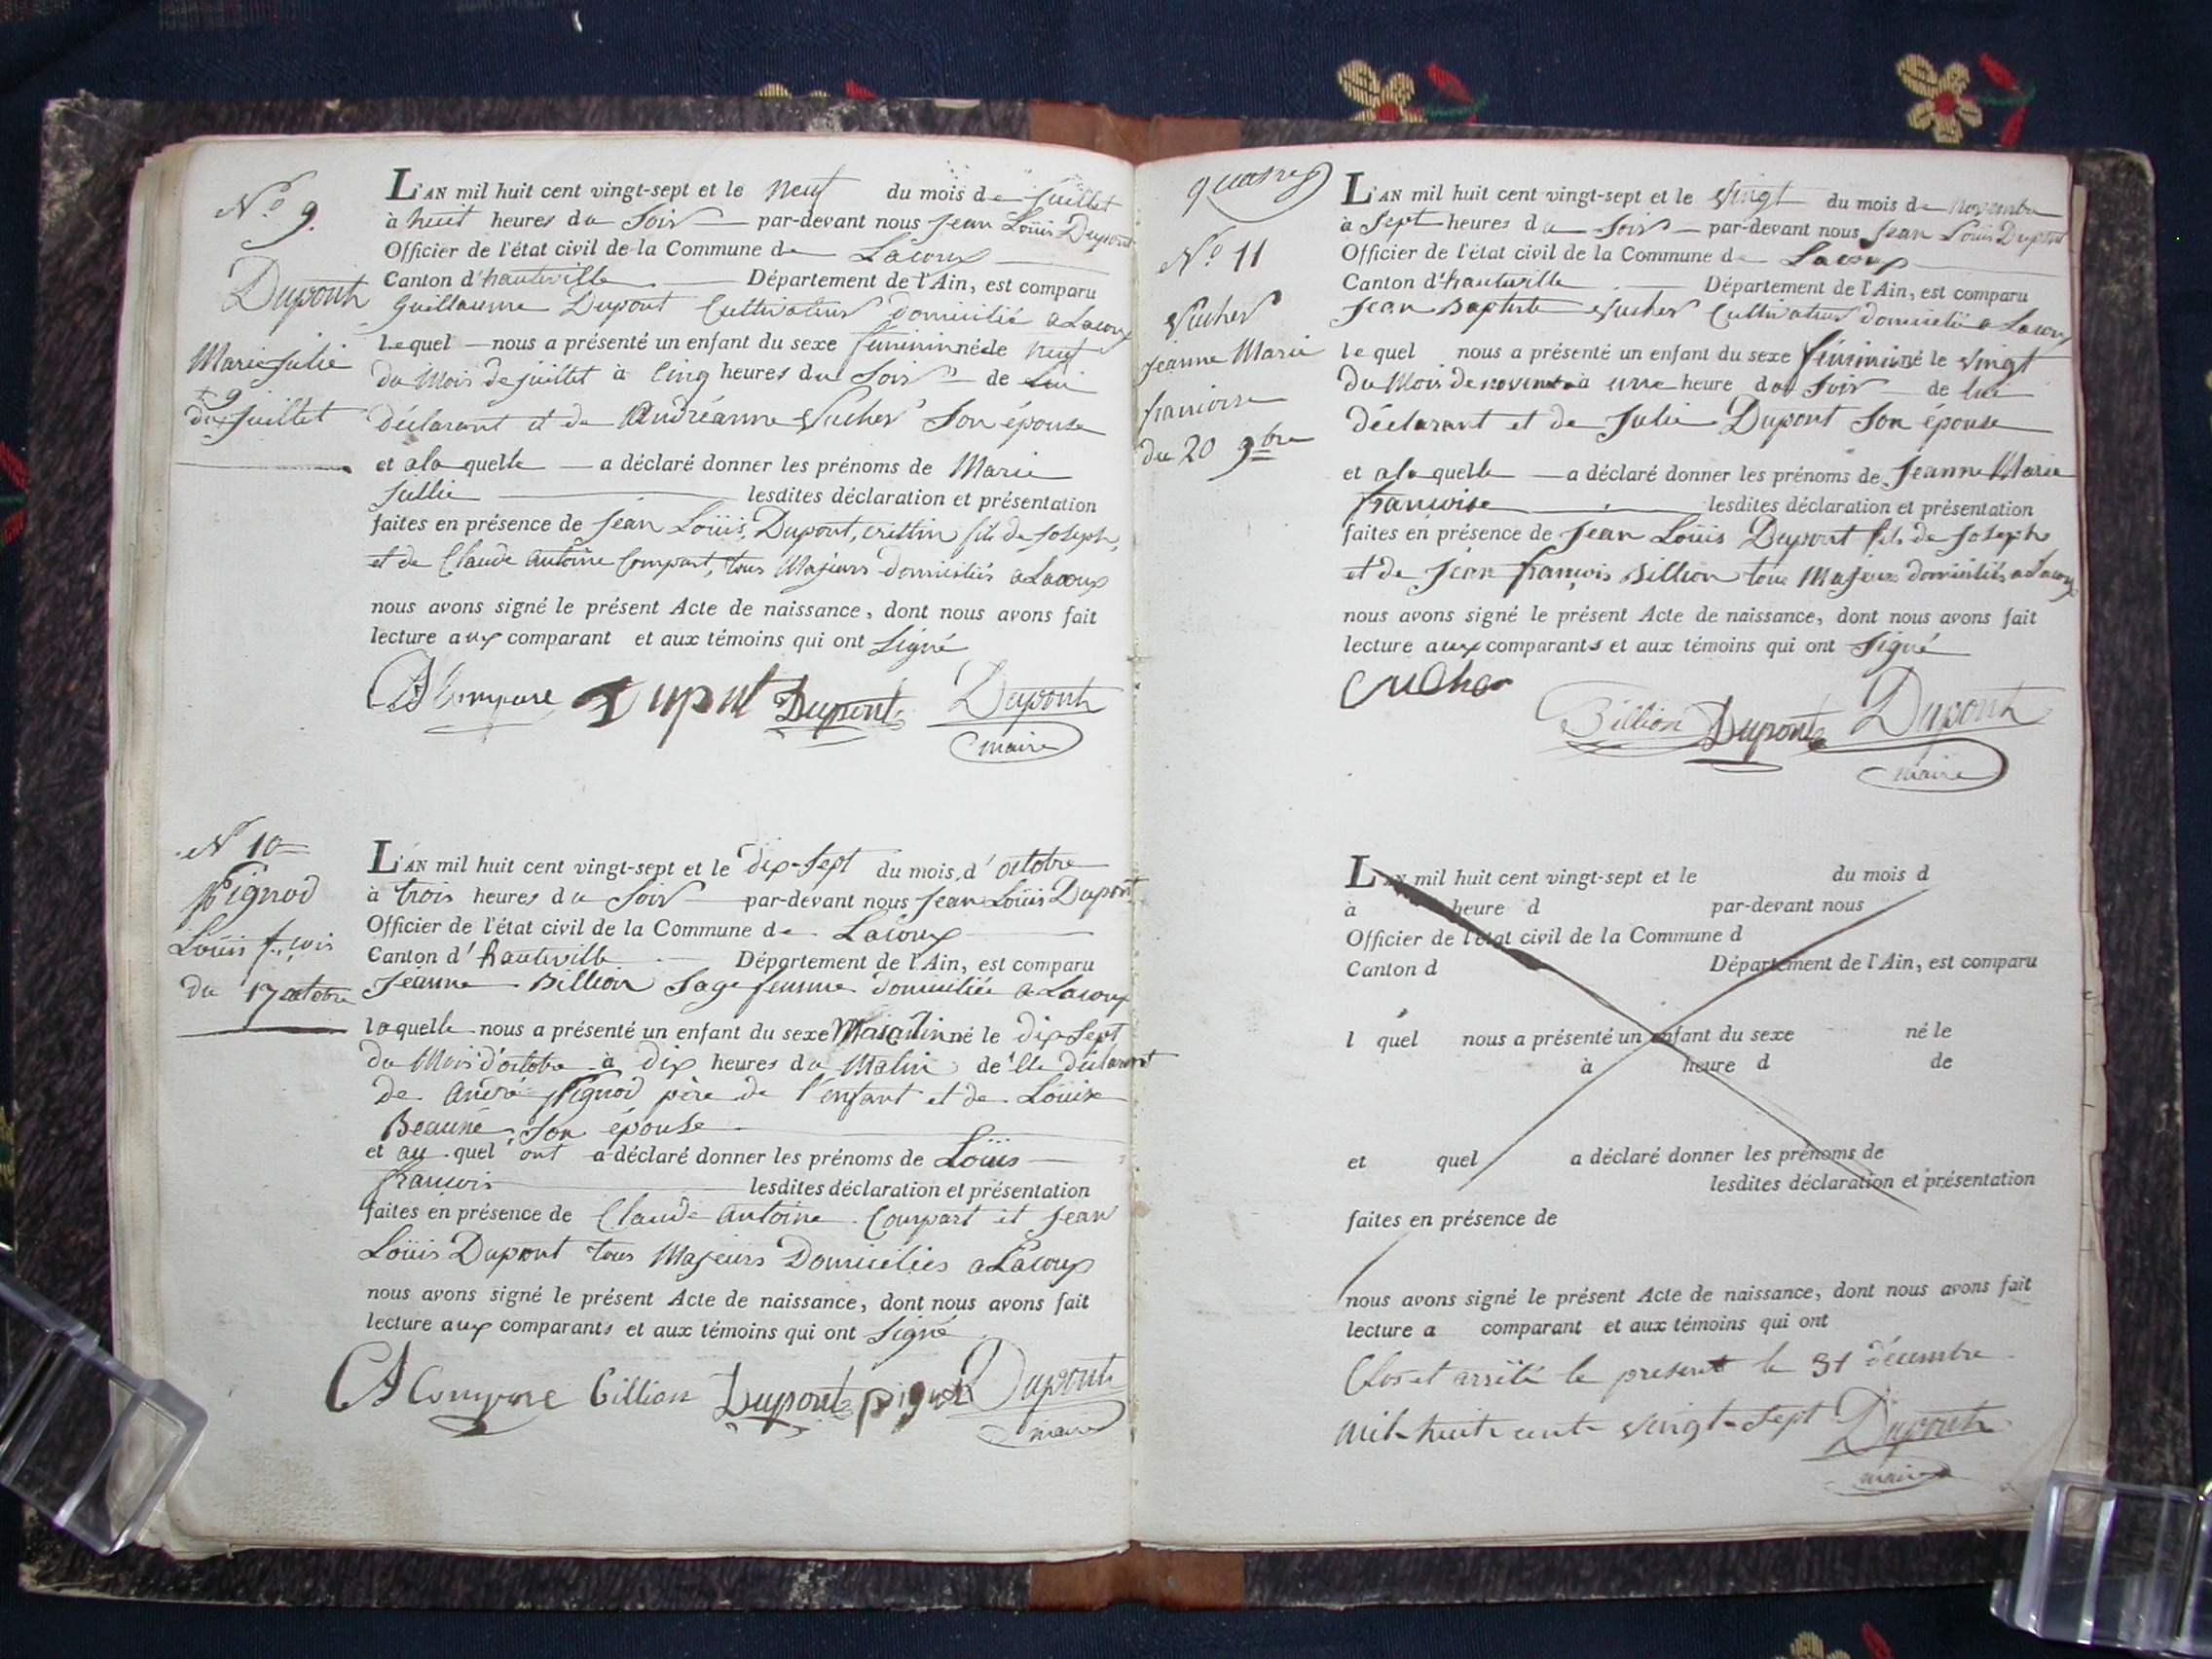 N.º 9.
Dupont
Marie Julie
du 9 Juillet
L'AN mil huit cent vingt-sept et le neuf du mois de Juillet
à huit heures du Soir par-devant nous Jean Loüis Dupont
Officier de l'état civil de la Commune de Lacoux
Canton d'hauteville Département de l'Ain, est comparu
Guillaume Dupont Cultivateur domicilié a Lacoux
lequel nous a présenté un enfant du sexe féminin né le neuf
du Mois de juillet à Cinq heures du Soir de lui
déclarant et de Andréanne Vucher Son épouse
et a la quelle a déclaré donner les prénoms de Marie
Jullie lesdites déclaration et présentation
faites en présence de Jean Loüis Dupont, crettin fils de Joseph,
et de Claude Antoine Compart, tous Majeurs domiciliés a Lacoux
nous avons signé le présent Acte de naissance, dont nous avons fait
lecture aux comparant et aux témoins qui ont Signé
CA Compare Dupnt Dupont Dupont
maire
N 10
Pignod
Loüis f.çois
du 17 octobre
L'AN mil huit cent vingt-sept et le dix-Sept du mois d'octobre
à trois heures du Soir par-devant nous Jean Loüis Dupont
Officier de l'état civil de la Commune de Lacoux
Canton d'hauteville Département de l'Ain, est comparu
Jeanne Billion Sage femme domiciliée a Lacoux
laquelle nous a présenté un enfant du sexe Masculin né le dix-Sept
du Mois d'octobre à Dix heures du Matin de'lle déclarant
de André Pignod père de l'enfant et de Loüise
Beaune Son épouse
et au quel ont a déclaré donner les prénoms de Loüis
francois lesdites déclaration et présentation
faites en présence de Claude Antoine Compart et Jean
Loüis Dupont tous Majeurs Domiciliés a Lacoux
nous avons signé le présent Acte de naissance, dont nous avons fait
lecture aux comparants et aux témoins qui ont Signé
CA Compare Billion Dupont pignod Dupont
maire
quatre
N.º 11
Vucher
Jeanne Marie
francoise
du 20 9bre
L'AN mil huit cent vingt-sept et le Vingt du mois de novembre
à Sept heures du Soir par-devant nous Jean Loüis Dupont
Officier de l'état civil de la Commune de Lacoux
Canton d'hauteville Département de l'Ain, est comparu
Jean Baptiste Vucher Cultivateur domicilié a Lacoux
lequel nous a présenté un enfant du sexe féminin né le Vingt
du Mois de novembre à une heure du Soir de lui
déclarant et de Julie Dupont Son épouse
et a la quelle a déclaré donner les prénoms de Jeanne Marie
francoise lesdites déclaration et présentation
faites en présence de Jean Loüis Dupont fils de Joseph
et de Jean françois Billion tous Majeurs domiciliés a Lacoux
nous avons signé le présent Acte de naissance, dont nous avons fait
lecture aux comparants et aux témoins qui ont Signé
Vucher
Billion Dupont Dupont
maire
L'AN mil huit cent vingt-sept et le du mois d
à heure d par-devant nous
Officier de l'état civil de la Commune d
Canton d Département de l'Ain, est comparu
l quel nous a présenté un enfant du sexe né le
à heure d de
et quel a déclaré donner les prénoms de
lesdites déclaration et présentation
faites en présence de
nous avons signé le présent Acte de naissance, dont nous avons fait
lecture a comparant et aux témoins qui ont
Clos et arrêté le present le 31 décembre
mil huit cent vingt-sept Dupont
maire